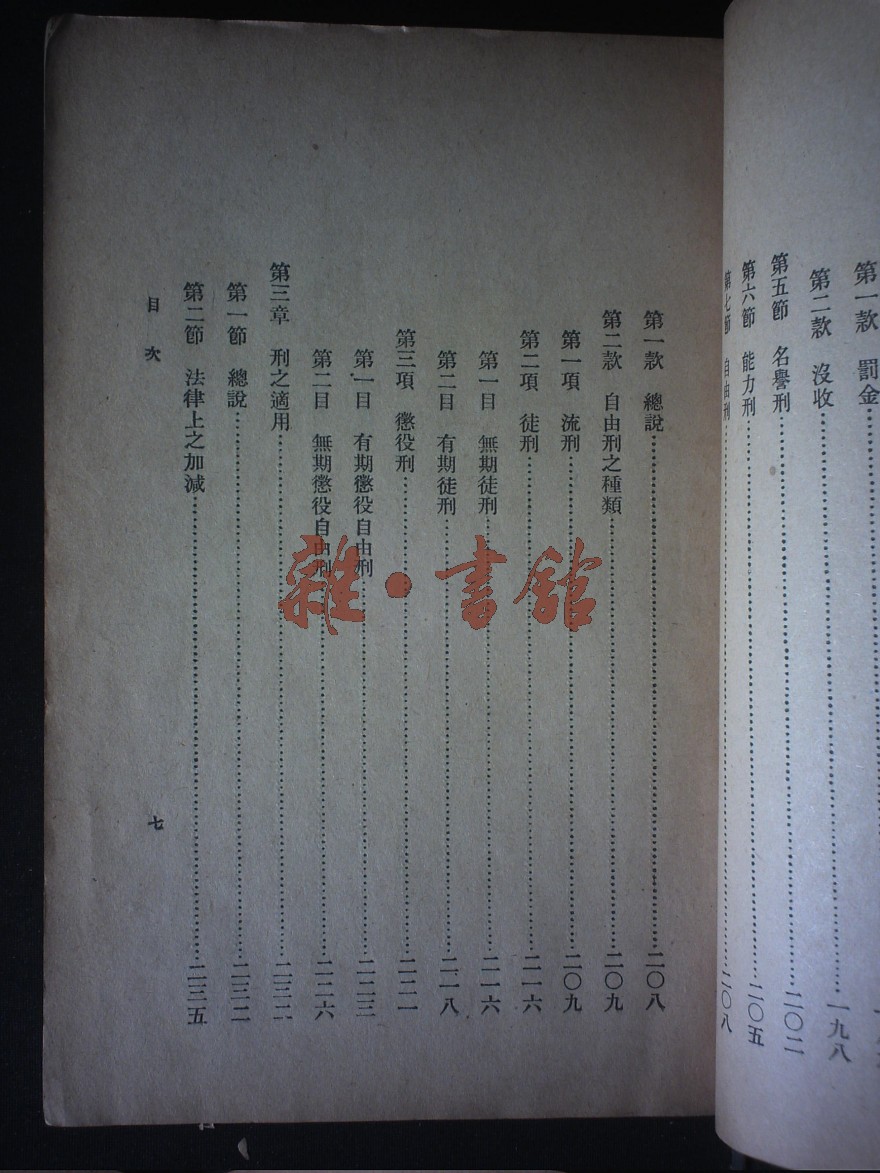 第一款　罰金
第二款　沒收……一九八
第五節　名譽刑……二〇二
第六節　能力刑……二〇五
第七節　自由刑……二〇八
第一款　總說……二〇八
第二款　自由刑之種類……二〇九
第一項　流刑……二〇九
第二項　徒刑……二一六
第一目　無期徒刑……二一六
第二目　有期徒刑……二一八
第三項　懲役刑……二二一
第一目　有期懲役自由刑……二二三
第二目　無期懲役自由刑……二二六
第三章　刑之適用……二三二
第一節　總說……二三二
第二節　法律上之加減……二三五
目次
七
雜·書館